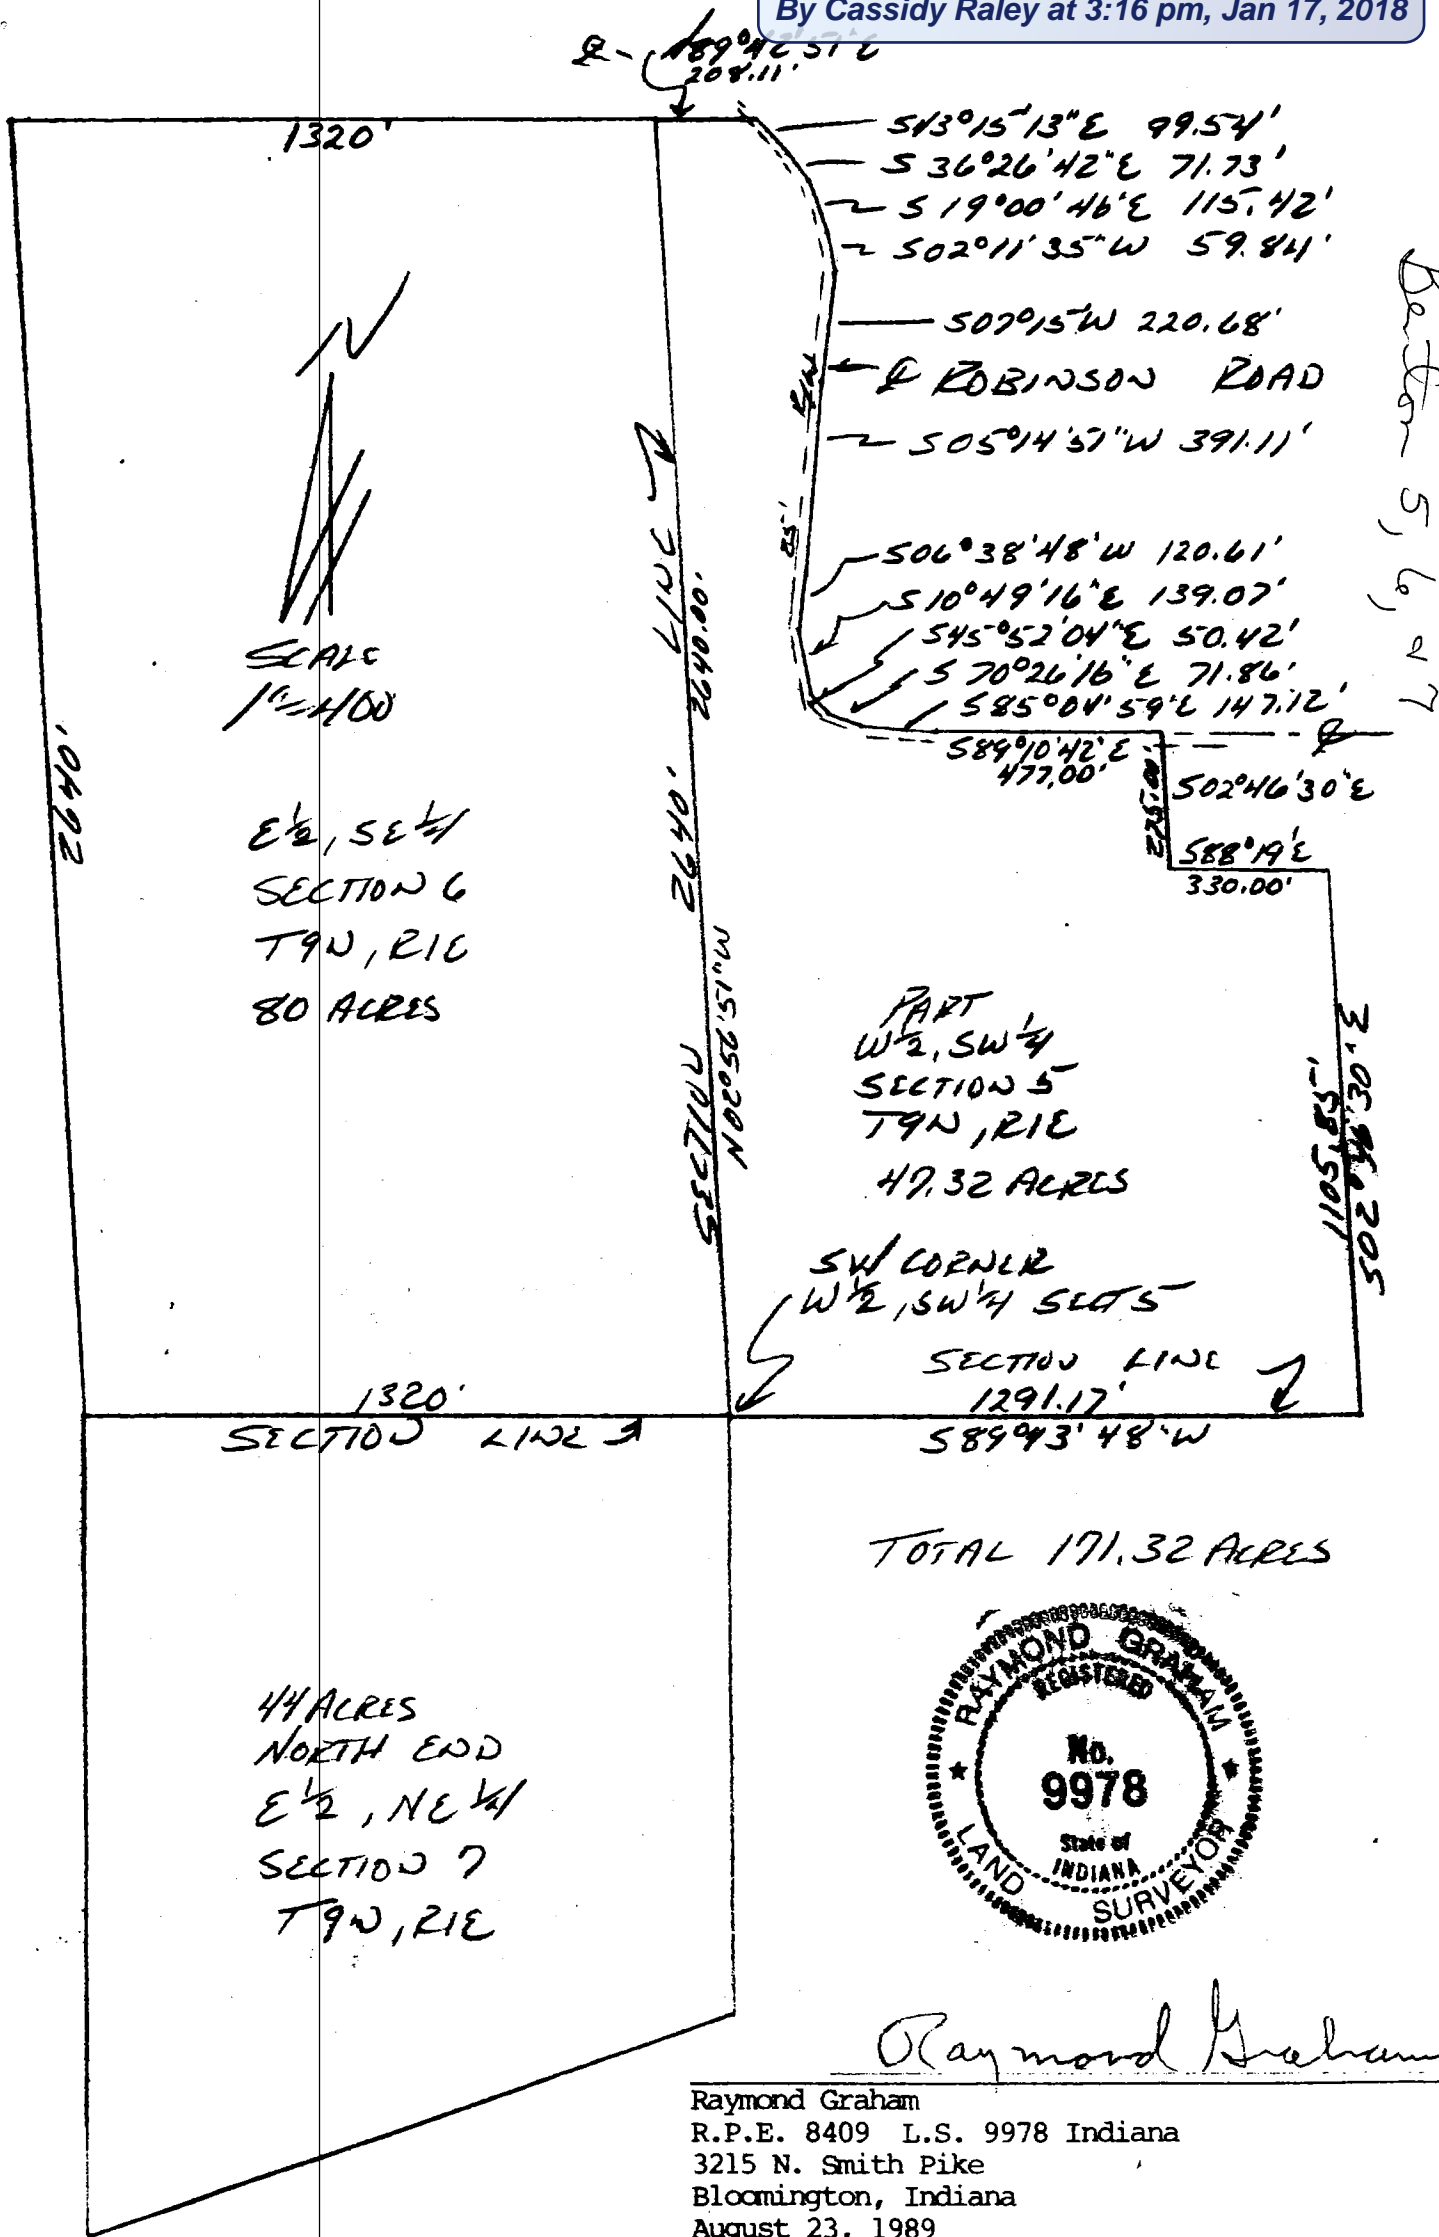 By Cassidy Raley at 3:16 pm, Jan 17, 2018
N89°42'57"E
208.11'
1320'
S43°15'13"E 99.54'
S36°26'42"E 71.73'
S19°00'46"E 115.42'
S02°11'35"W 59.84'
S07°15'W 220.68'
℄ ROBINSON ROAD
R/W
S05°14'51"W 391.11'
25'
S06°38'48"W 120.61'
S10°49'16"E 139.07'
S45°52'04"E 50.42'
S70°26'16"E 71.86'
S85°04'59"E 147.12'
S89°10'42"E
477.00'
℄
225.00'
S02°46'30"E
S88°19'E
330.00'
Benton 5, 6, & 7
N
SCALE
1"=400
2640'
E½, SE¼
SECTION 6
T9N, R1E
80 ACRES
SECTION LINE
2640' 2640.00'
N02°56'51"W
PART
W½, SW¼
SECTION 5
T9N, R1E
47.32 ACRES
1105.85'
S02°46'30"E
SW CORNER
W½, SW¼ SECT 5
SECTION LINE
1291.17'
S89°43'48"W
1320'
SECTION LINE
TOTAL 171.32 ACRES
44 ACRES
NORTH END
E½, NE¼
SECTION 7
T9N, R1E
RAYMOND GRAHAM
REGISTERED
No.
9978
State of
INDIANA
LAND SURVEYOR
Raymond Graham
Raymond Graham
R.P.E. 8409 L.S. 9978 Indiana
3215 N. Smith Pike
Bloomington, Indiana
August 23, 1989